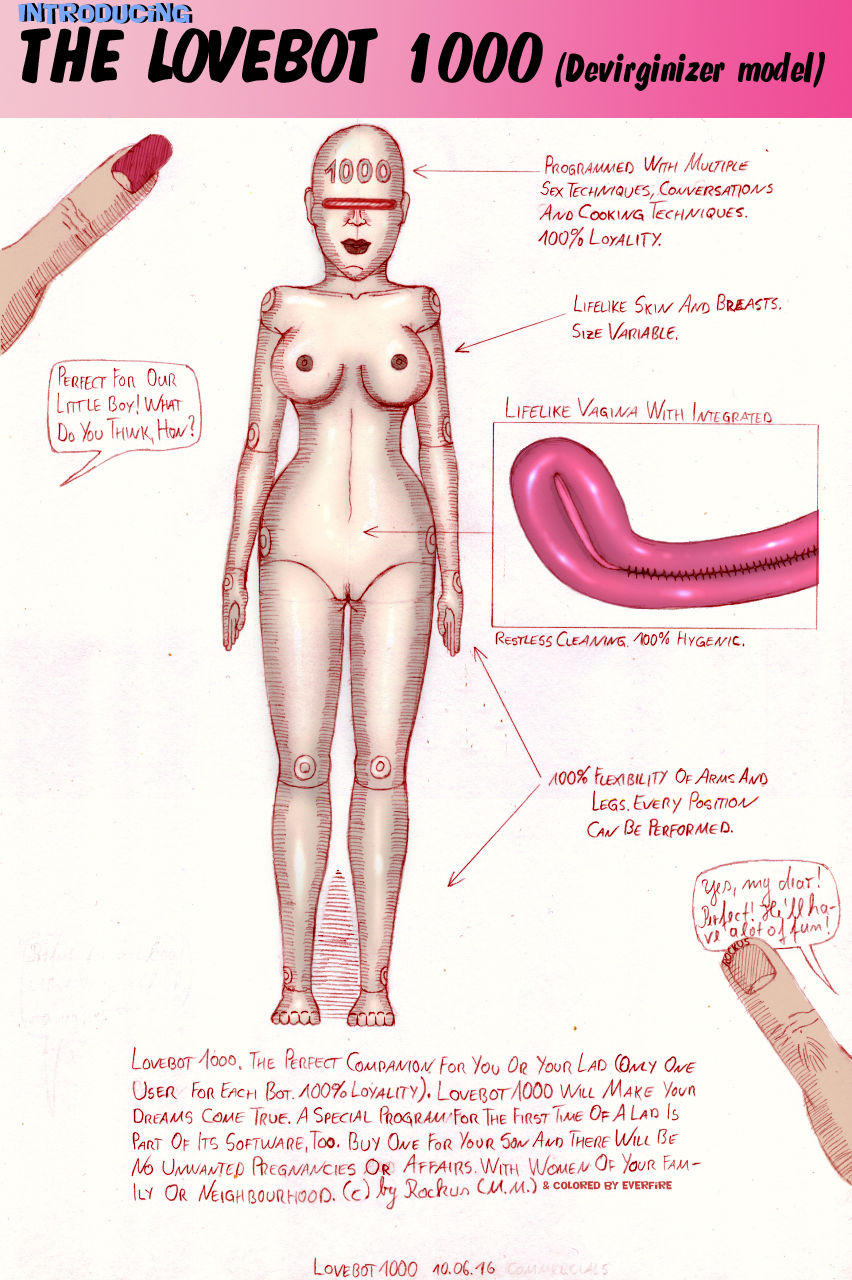 INTRODUCING
THE LOVEBOT 1000 (Devirginizer model)
1000
PROGRAMMED WITH MULTIPLE
SEX TECHNIQUES, CONVERSATIONS
AND COOKING TECHNIQUES.
100% LOYALITY.
LIFELIKE SKIN AND BREASTS.
SIZE VARIABLE.
PERFECT FOR OUR
LITTLE BOY! WHAT
DO YOU THINK, HON?
LIFELIKE VAGINA WITH INTEGRATED
RESTLESS CLEANING. 100% HYGENIC.
100% FLEXIBILITY OF ARMS AND
LEGS. EVERY POSITION
CAN BE PERFORMED.
Yes, my dear!
Perfect! He'll ha-
ve a lot of fun!
ROCKUS
LOVEBOT 1000. THE PERFECT COMPANION FOR YOU OR YOUR LAD (ONLY ONE
USER FOR EACH BOT. 100% LOYALITY). LOVEBOT 1000 WILL MAKE YOUR
DREAMS COME TRUE. A SPECIAL PROGRAM FOR THE FIRST TIME OF A LAD IS
PART OF ITS SOFTWARE, TOO. BUY ONE FOR YOUR SON AND THERE WILL BE
NO UNWANTED PREGNANCIES OR AFFAIRS WITH WOMEN OF YOUR FAM-
ILY OR NEIGHBOURHOOD. (c) by Rockus (M.M.) & COLORED BY EVERFIRE
LOVEBOT 1000 10.06.16 COMMERCIALS